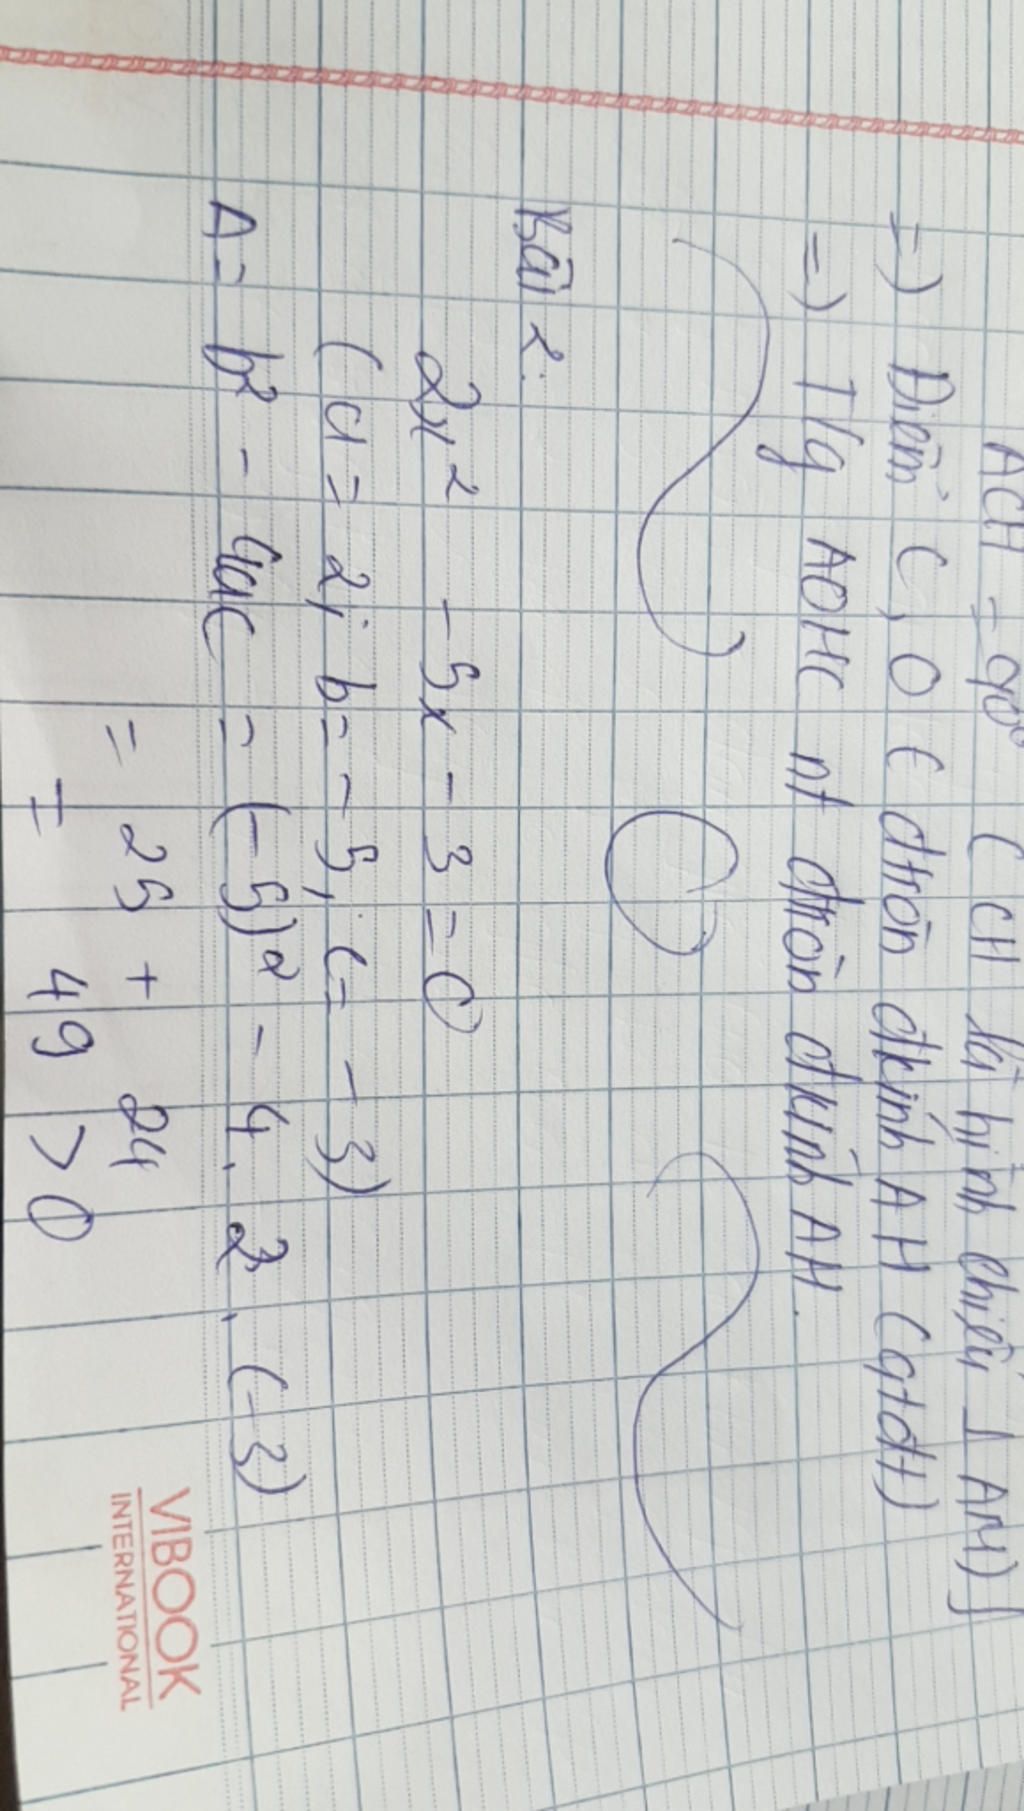 ACH = 90° ( CH là hình chiếu ⊥ AM)
=) Điểm C, O ∈ đtròn đkính AH (qtdt)
=) T/g AOHC nt đtròn đkính AH.
Bài 2:
2x² - 5x - 3 = 0
(a = 2; b = -5, c = -3)
Δ = b² - 4ac = (-5)² - 4. 2. (-3)
= 25 + 24
= 49 > 0
VIBOOK
INTERNATIONAL